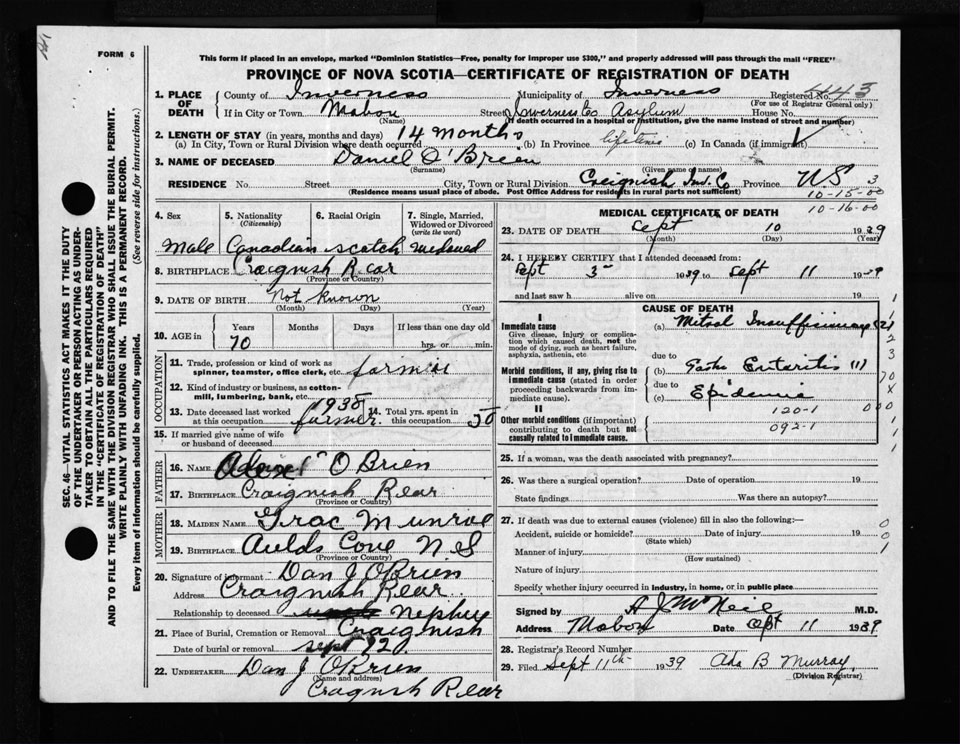 FORM 6
This form if placed in an envelope, marked "Dominion Statistics—Free, penalty for improper use $300," and properly addressed will pass through the mail "FREE"
PROVINCE OF NOVA SCOTIA—CERTIFICATE OF REGISTRATION OF DEATH
SEC. 46—VITAL STATISTICS ACT MAKES IT THE DUTY
OF THE UNDERTAKER OR PERSON ACTING AS UNDER-
TAKER TO OBTAIN ALL THE PARTICULARS REQUIRED
IN THE "CERTIFICATE OF REGISTRATION OF DEATH"
AND TO FILE THE SAME WITH THE DIVISION REGISTRAR WHO SHALL ISSUE THE BURIAL PERMIT.
WRITE PLAINLY WITH UNFADING INK. THIS IS A PERMANENT RECORD.
Every item of information should be carefully supplied. (See reverse side for instructions.)
1. PLACE OF DEATH County of Inverness Municipality of Inverness Registered No. 3
(For use of Registrar General only)
If in City or Town Mabou Street Inverness Co Asylum House No.
(Name) (If death occurred in a hospital or institution, give the name instead of street and number)
2. LENGTH OF STAY (in years, months and days) 14 months
(a) In City, Town or Rural Division where death occurred (b) In Province lifetime (c) In Canada (if immigrant)
3. NAME OF DECEASED Daniel O'Brien
(Surname) (Given name or names)
RESIDENCE No. Street City, Town or Rural Division Creignish Ind. Co Province N.S 3
(Residence means usual place of abode. Post Office Address for residents in rural parts not sufficient)
10-15-00
10-16-00
4. Sex 5. Nationality (Citizenship) 6. Racial Origin 7. Single, Married, Widowed or Divorced (write the word)
Male Canadian Scotch Widowed
8. BIRTHPLACE Craignish Rear
(Province or Country)
9. DATE OF BIRTH Not Known
(Month) (Day) (Year)
10. AGE in Years Months Days If less than one day old
70 hrs. or min.
OCCUPATION
11. Trade, profession or kind of work as spinner, teamster, office clerk, etc. farmer
12. Kind of industry or business, as cotton-mill, lumbering, bank, etc.
13. Date deceased last worked at this occupation 1938 farmer. 14. Total yrs. spent in this occupation 50
15. If married give name of wife or husband of deceased
FATHER
16. NAME O Brien
17. BIRTHPLACE Craignish Rear
(Province or Country)
MOTHER
18. MAIDEN NAME Grac Munroe
19. BIRTHPLACE Aulds Cove N S
(Province or Country)
20. Signature of informant Dan J O'Brien
Address Craignish Rear
Relationship to deceased Nephey
21. Place of Burial, Cremation or Removal Craignish
Date of burial or removal Sept 12
22. UNDERTAKER Dan J O'Brien
(Name and address)
Cragnish Rear
MEDICAL CERTIFICATE OF DEATH
23. DATE OF DEATH Sept 10 1939
(Month) (Day) (Year)
24. I HEREBY CERTIFY that I attended deceased from:
Sept 3 1939 to Sept 11 1939
and last saw h alive on 19
CAUSE OF DEATH
I
Immediate cause
Give disease, injury or complication which caused death, not the mode of dying, such as heart failure, asphyxia, asthenia, etc
(a) Mitral Insufficiency (2)
due to
Morbid conditions, if any, giving rise to immediate cause (stated in order proceeding backwards from immediate cause).
(b) Gastro Enteritis (1)
due to
(c) Epidemic
II
Other morbid conditions (if important) contributing to death but not causally related to immediate cause.
120-1
092-1
25. If a woman, was the death associated with pregnancy?
26. Was there a surgical operation? Date of operation 19
State findings Was there an autopsy?
27. If death was due to external causes (violence) fill in also the following:—
Accident, suicide or homicide? Date of injury 19
(State which)
Manner of injury
(How sustained)
Nature of injury
Specify whether injury occurred in industry, in home, or in public place
Signed by A J McNeil M.D.
Address Mabou Date Sept 11 1939
28. Registrar's Record Number
29. Filed Sept 11th 1939 Ada B Murray
(Division Registrar)